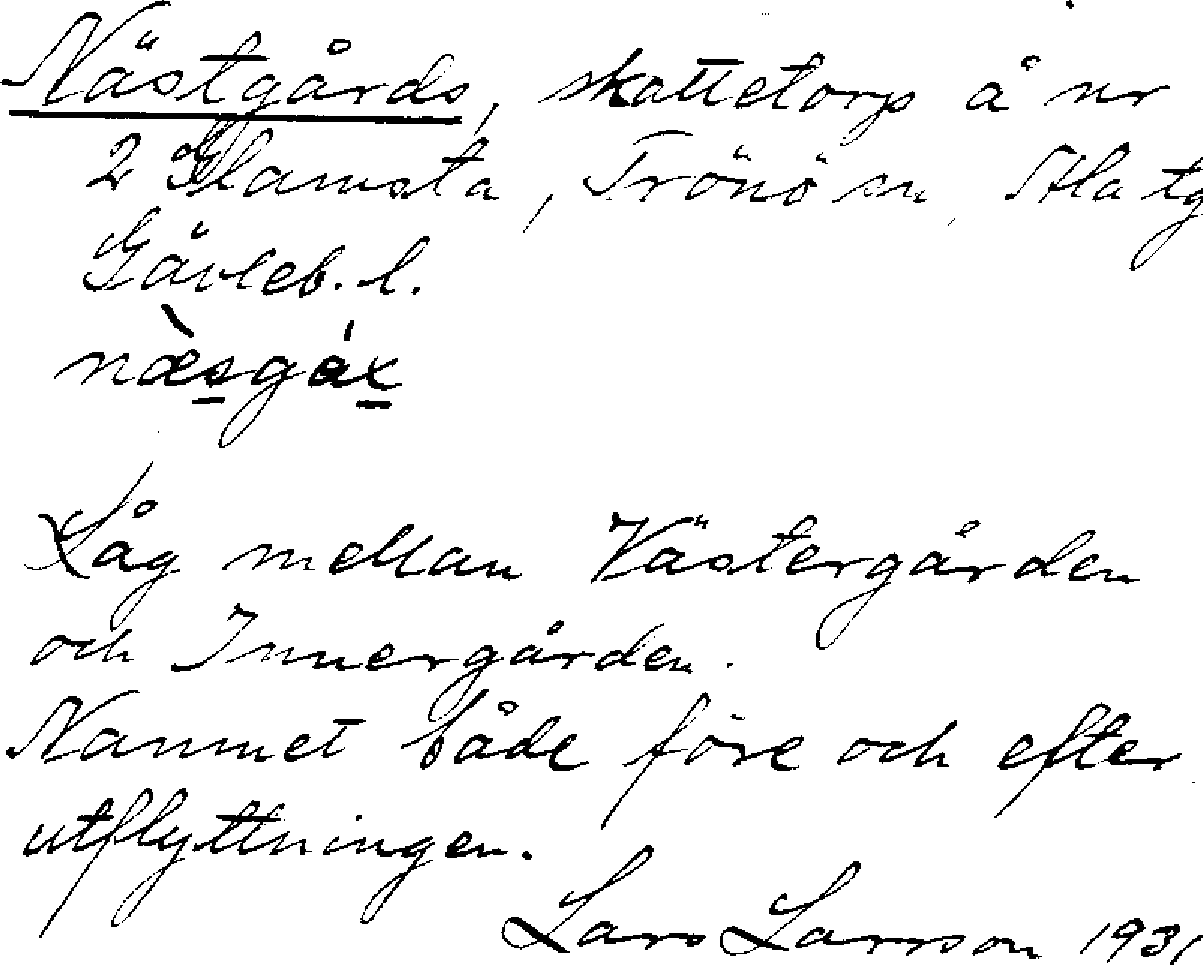 Nästgårds, skattetorp å nr
2 Glamsta, Trönö sn, Ala tg
Gävleb. l.
næsgáx
Låg mellan Västergården
och Innergården.
Namnet både före och efter
utflyttningen.
Lars Larsson 1931